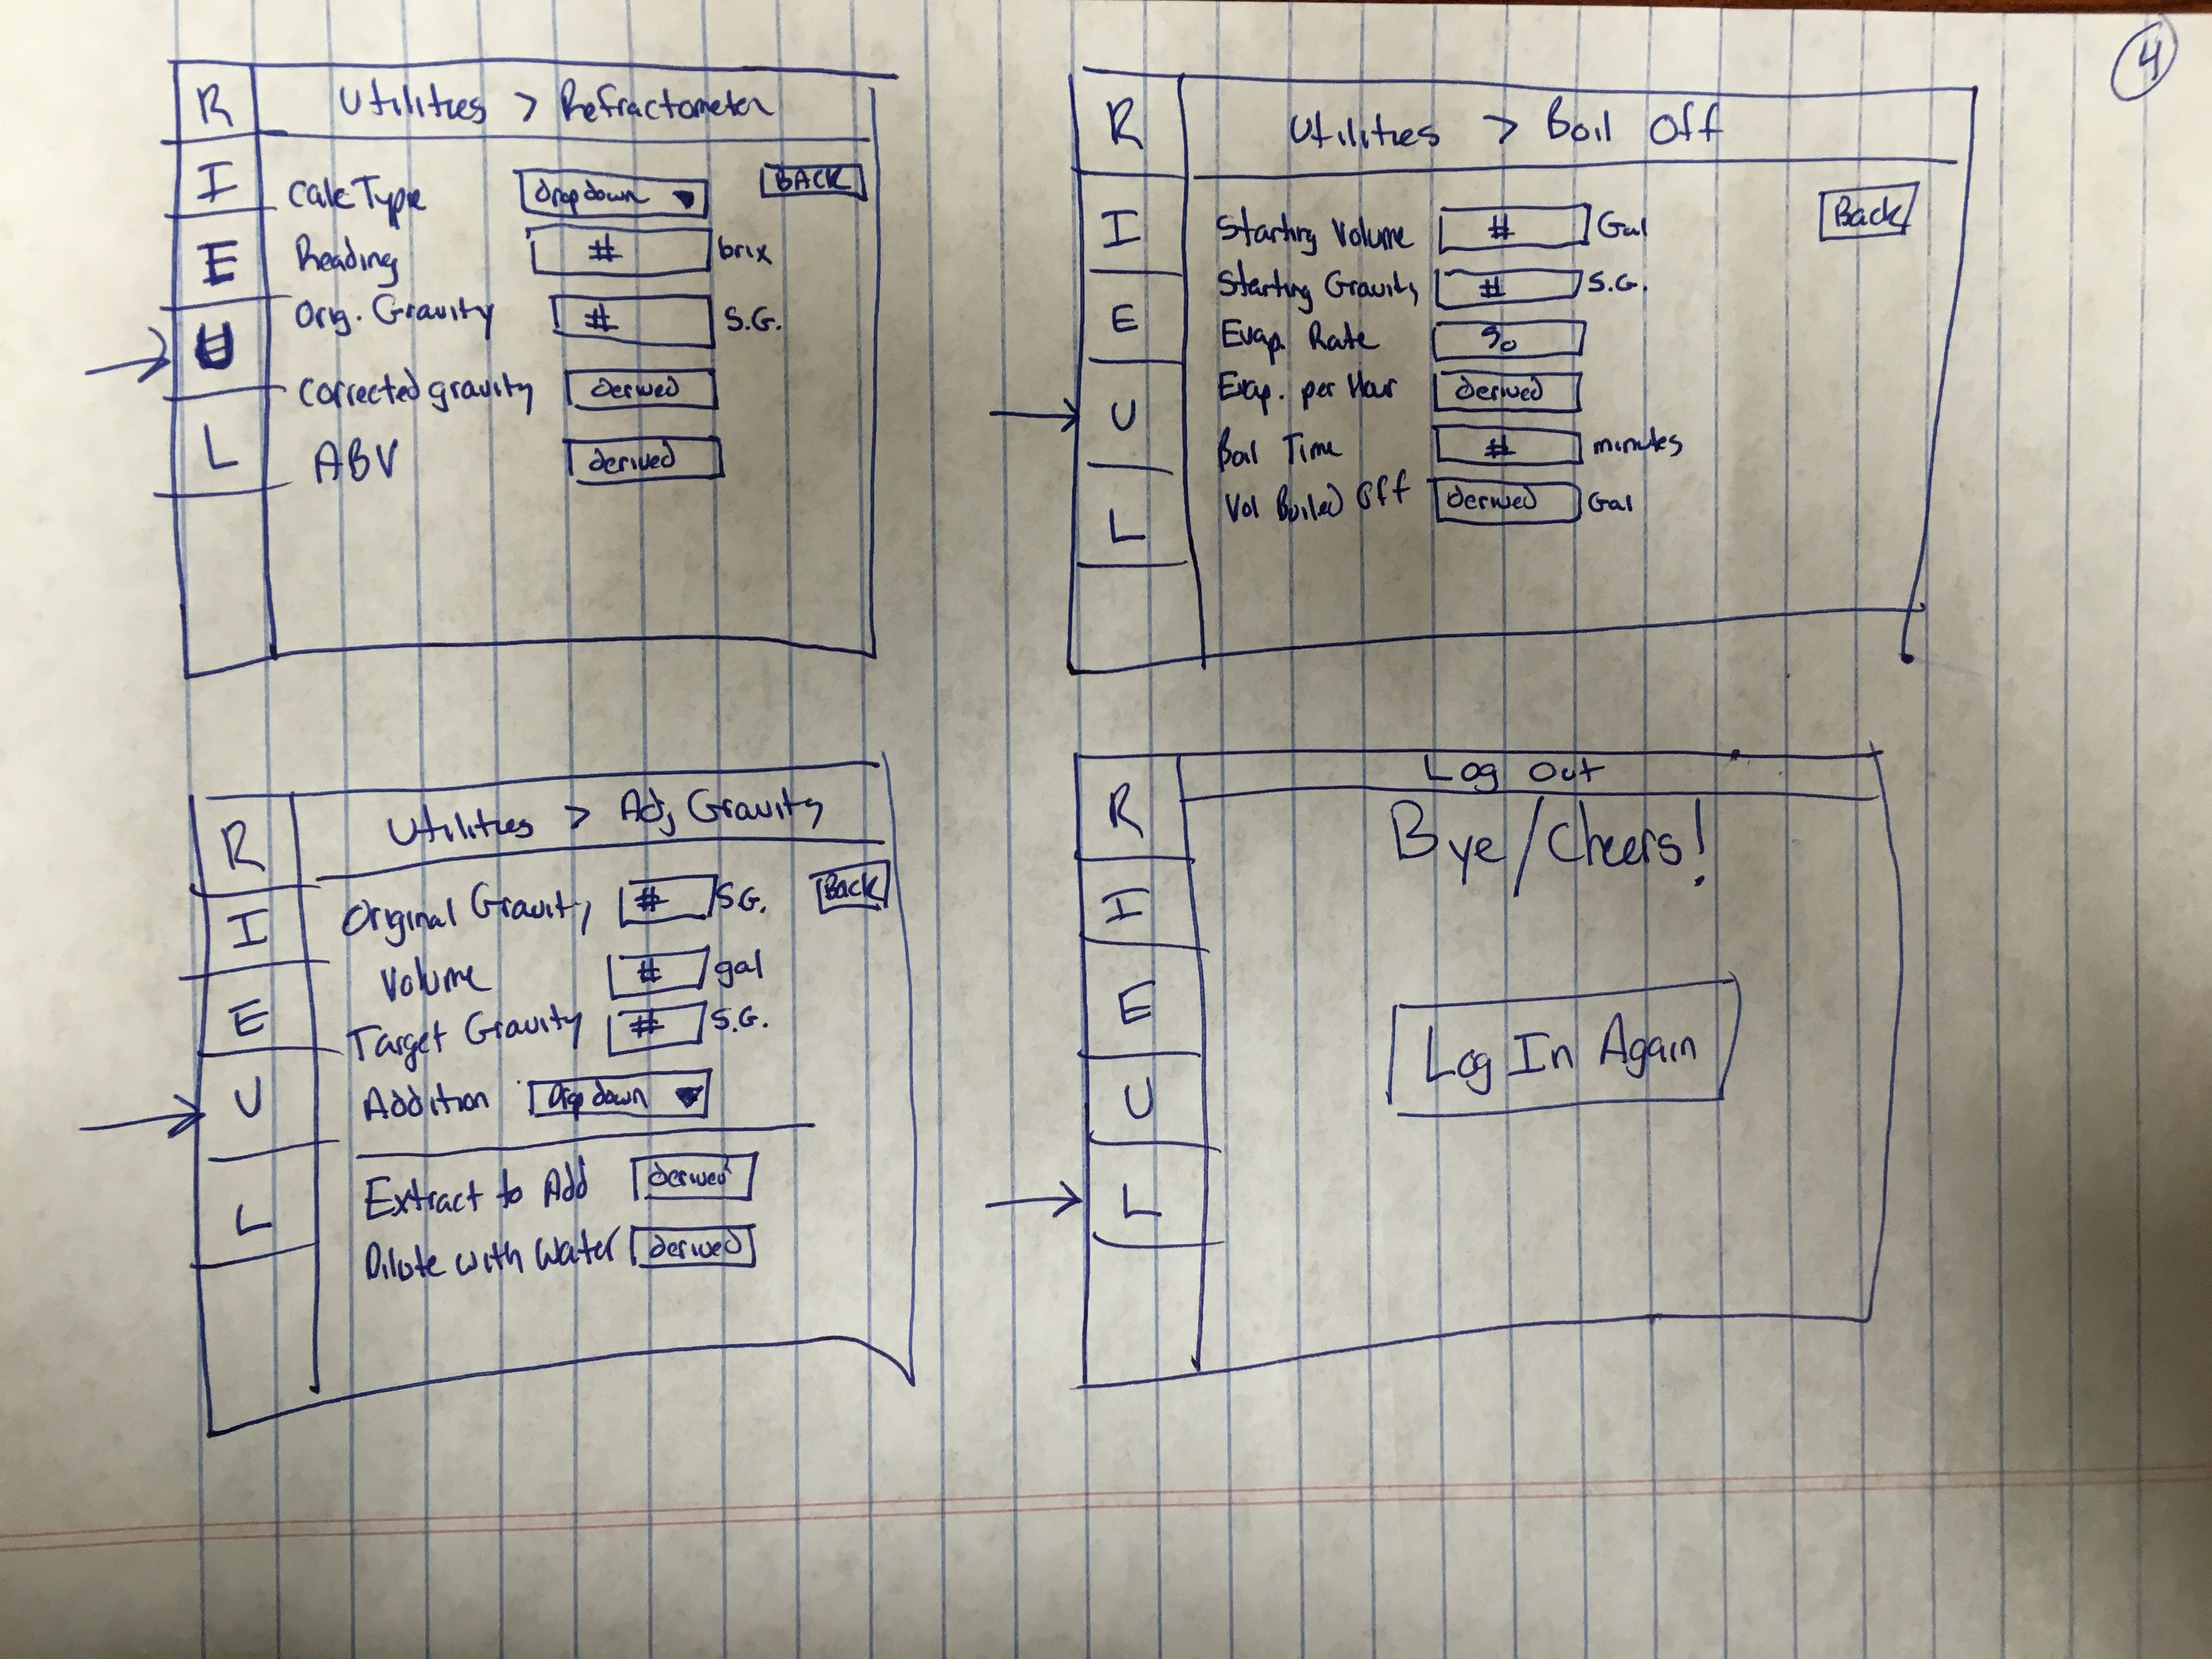 4
R
Utilities > Refractometer
I
Calc Type dropdown BACK
E
Reading # brix
Orig. Gravity # S.G.
U
Corrected gravity derived
L
ABV derived
R
Utilities > Boil Off
I
Starting Volume # Gal Back
Starting Gravity # S.G.
E
Evap. Rate %
Evap. per Hour derived
U
Boil Time # minutes
L
Vol Boiled Off derived Gal
R
Utilities > Adj Gravity
I
Original Gravity # S.G. Back
Volume # gal
E
Target Gravity # S.G.
U
Addition Dropdown
L
Extract to Add derived
Dilute with Water derived
R
Log Out
Bye/Cheers!
I
E
Log In Again
U
L